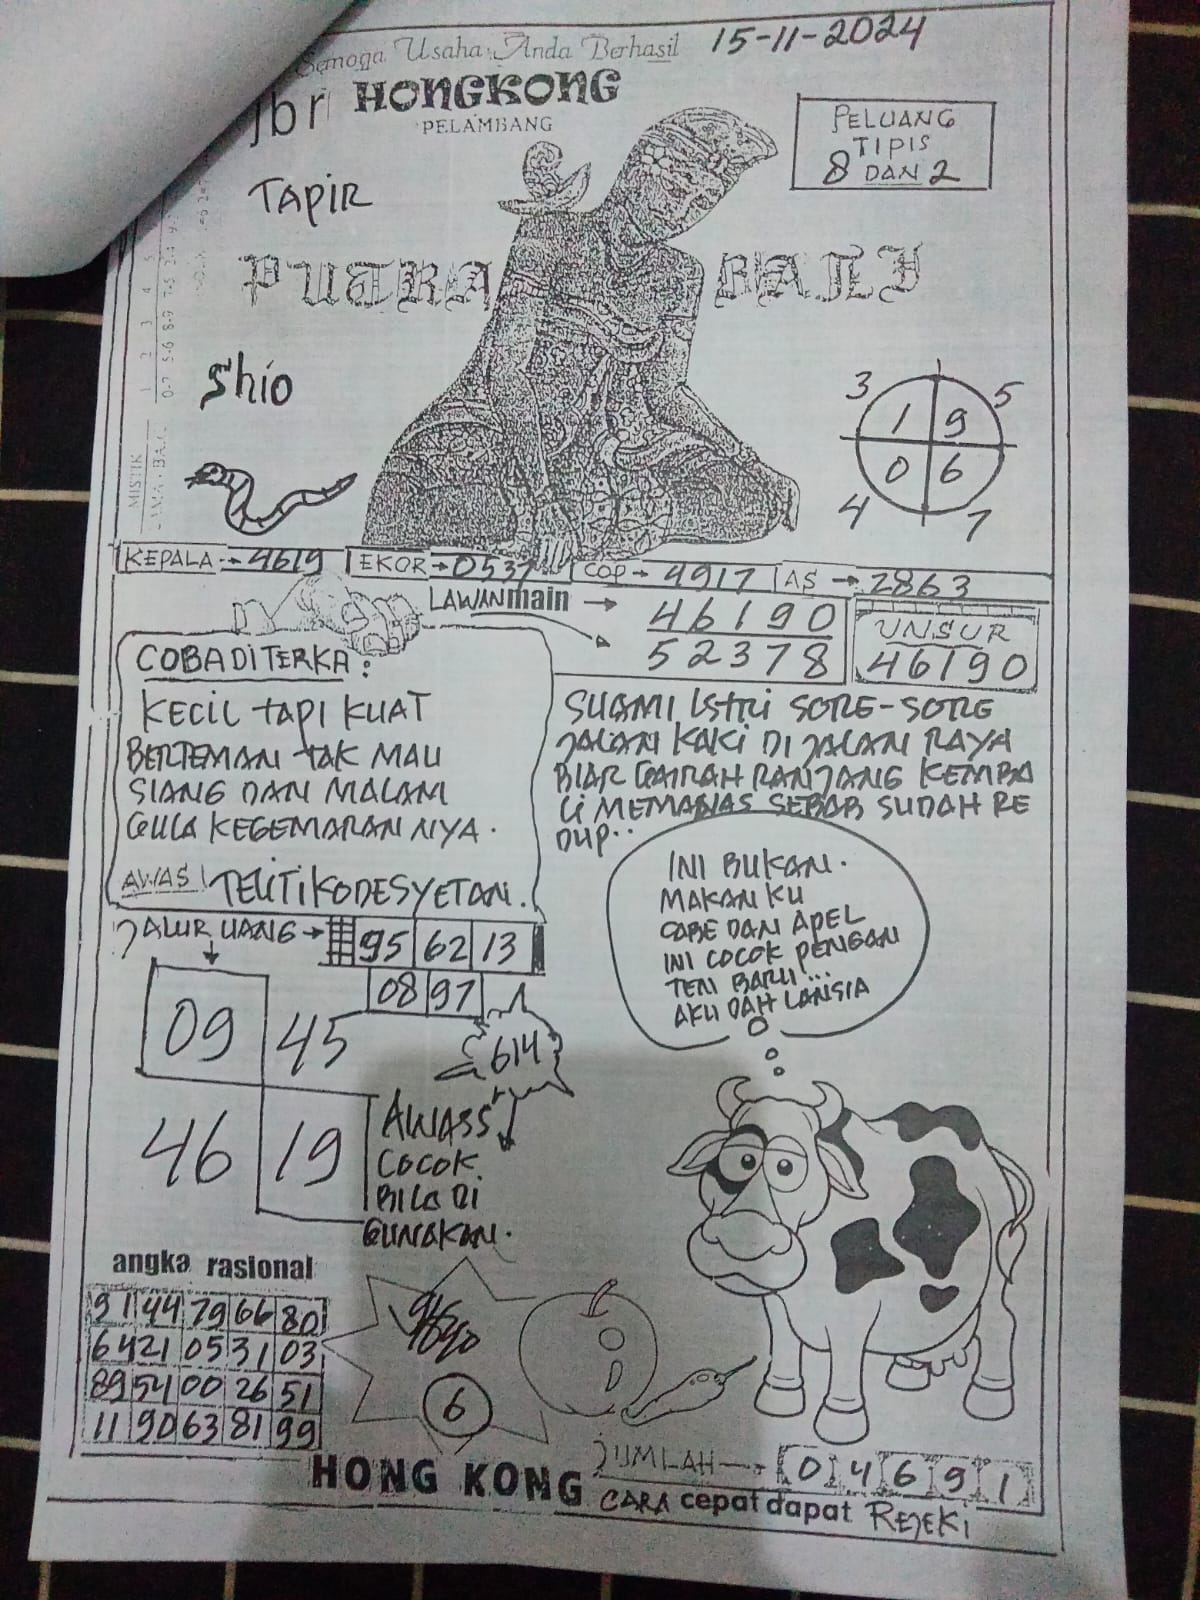 Semoga Usaha Anda Berhasil
15-11-2024
jbr HONGKONG
PELAMBANG
PELUANG
TIPIS
8 DAN 2
TAPIR
PUTRA BALI
Shio
3 5
1 9
0 6
4 7
MISTIK
KEPALA → 4619 EKOR → 0537 COP → 4917 AS → 2863
LAWAN main → 46190
52378
UNSUR
46190
COBA DITERKA :
KECIL TAPI KUAT
BERTEMAN TAK MAU
SIANG DAN MALAM
GULA KEGEMARAN NYA.
AWAS! TELITI KODE SYETAN.
SUAMI ISTRI SORE-SORE
JALAN KAKI DI JALAN RAYA
BIAR GAIRAH RANJANG KEMBA
LI MEMANAS SEBAB SUDAH RE
DUP..
INI BUKAN.
MAKAN KU
CABE DAN APEL
INI COCOK PENGAN
TEN BARU...
AKU DAH LANSIA
JALUR UANG → 95 62 13
08 97
09 45
614
46 19
AWASS
COCOK
BILA DI
GUNAKAN.
angka rasional
91 44 79 66 80
64 21 05 31 03
89 54 00 26 51
11 90 63 81 99
6
JUMLAH → 0 4 6 9 1
HONG KONG CARA cepat dapat REJEKI